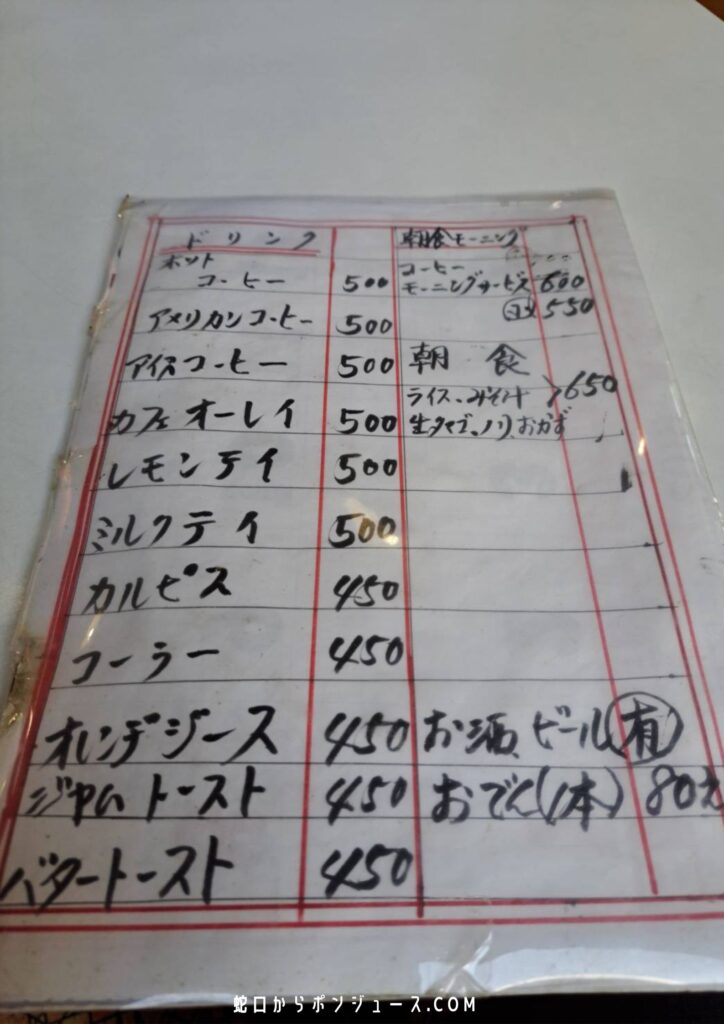 ドリンク
ホット
コーヒー 500
アメリカンコーヒー 500
アイスコーヒー 500
カフェオーレイ 500
レモンテイ 500
ミルクテイ 500
カルピス 450
コーラー 450
オレンヂジース 450
ジャムトースト 450
バタートースト 450
朝食モーニング
コーヒー
モーニングサービス 600
550
朝食
ライス、みそ汁 650
生タマゴ、ノリ、おかず
お酒、ビール 有
おでん(1本) 80
蛇口からポンジュース.COM